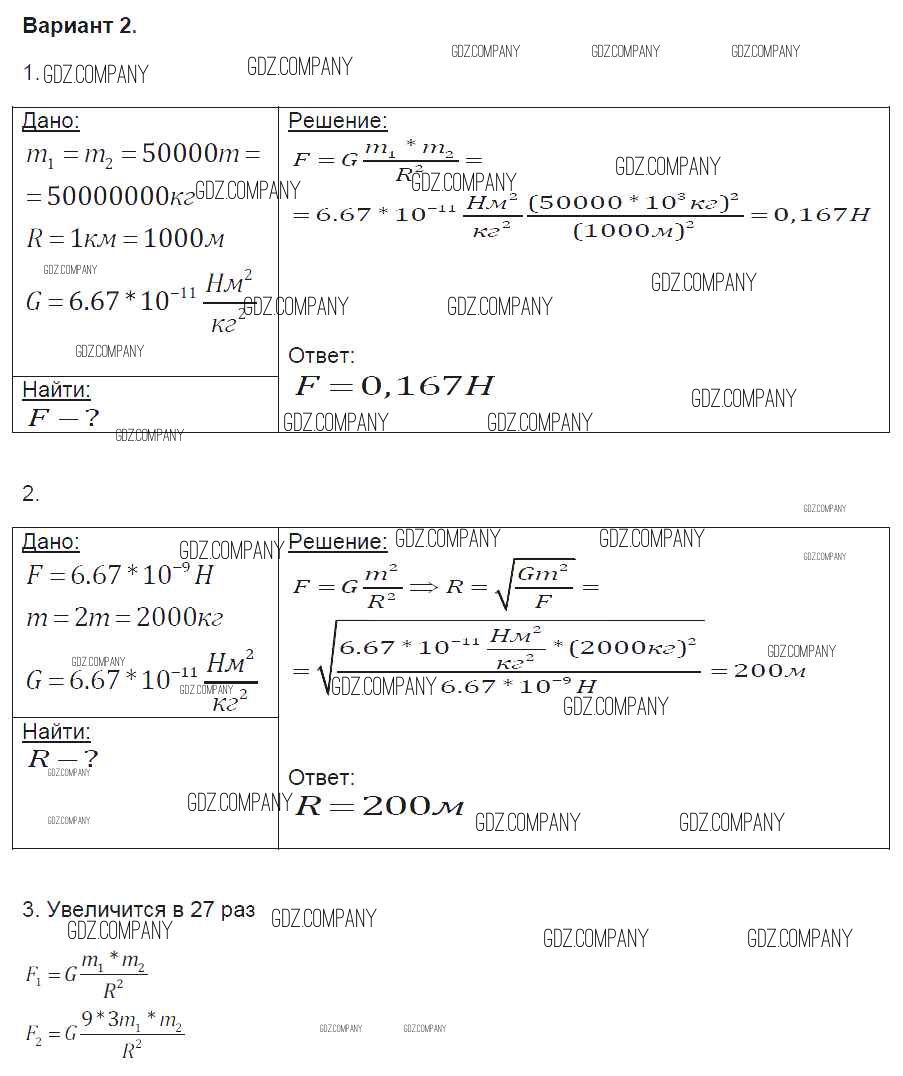 Вариант 2.
GDZ.COMPANY GDZ.COMPANY GDZ.COMPANY
1. GDZ.COMPANY GDZ.COMPANY
Дано:
m₁ = m₂ = 50000т =
= 50000000кг GDZ.COMPANY
R = 1км = 1000м
GDZ.COMPANY
G = 6.67 * 10⁻¹¹ Нм²/кг² GDZ.COMPANY
GDZ.COMPANY
Найти:
F − ?
GDZ.COMPANY
Решение:
F = G m₁ * m₂ / R² =
GDZ.COMPANY GDZ.COMPANY
= 6.67 * 10⁻¹¹ Нм²/кг² (50000 * 10³ кг)² / (1000м)² = 0,167Н
GDZ.COMPANY
GDZ.COMPANY
Ответ:
F = 0,167Н
GDZ.COMPANY
GDZ.COMPANY GDZ.COMPANY
2.
GDZ.COMPANY
Дано:
GDZ.COMPANY
F = 6.67 * 10⁻⁹ Н
m = 2т = 2000кг
GDZ.COMPANY
G = 6.67 * 10⁻¹¹ Нм²/кг²
GDZ.COMPANY
Найти:
R − ?
GDZ.COMPANY
GDZ.COMPANY
GDZ.COMPANY
Решение: GDZ.COMPANY GDZ.COMPANY
GDZ.COMPANY
F = G m²/R² ⟹ R = √(Gm²/F) =
= √(6.67 * 10⁻¹¹ Нм²/кг² * (2000кг)² / 6.67 * 10⁻⁹ Н) = 200м
GDZ.COMPANY
GDZ.COMPANY
GDZ.COMPANY
Ответ:
R = 200м
GDZ.COMPANY GDZ.COMPANY
3. Увеличится в 27 раз GDZ.COMPANY
GDZ.COMPANY GDZ.COMPANY GDZ.COMPANY
F₁ = G m₁ * m₂ / R²
F₂ = G 9 * 3m₁ * m₂ / R²
GDZ.COMPANY GDZ.COMPANY